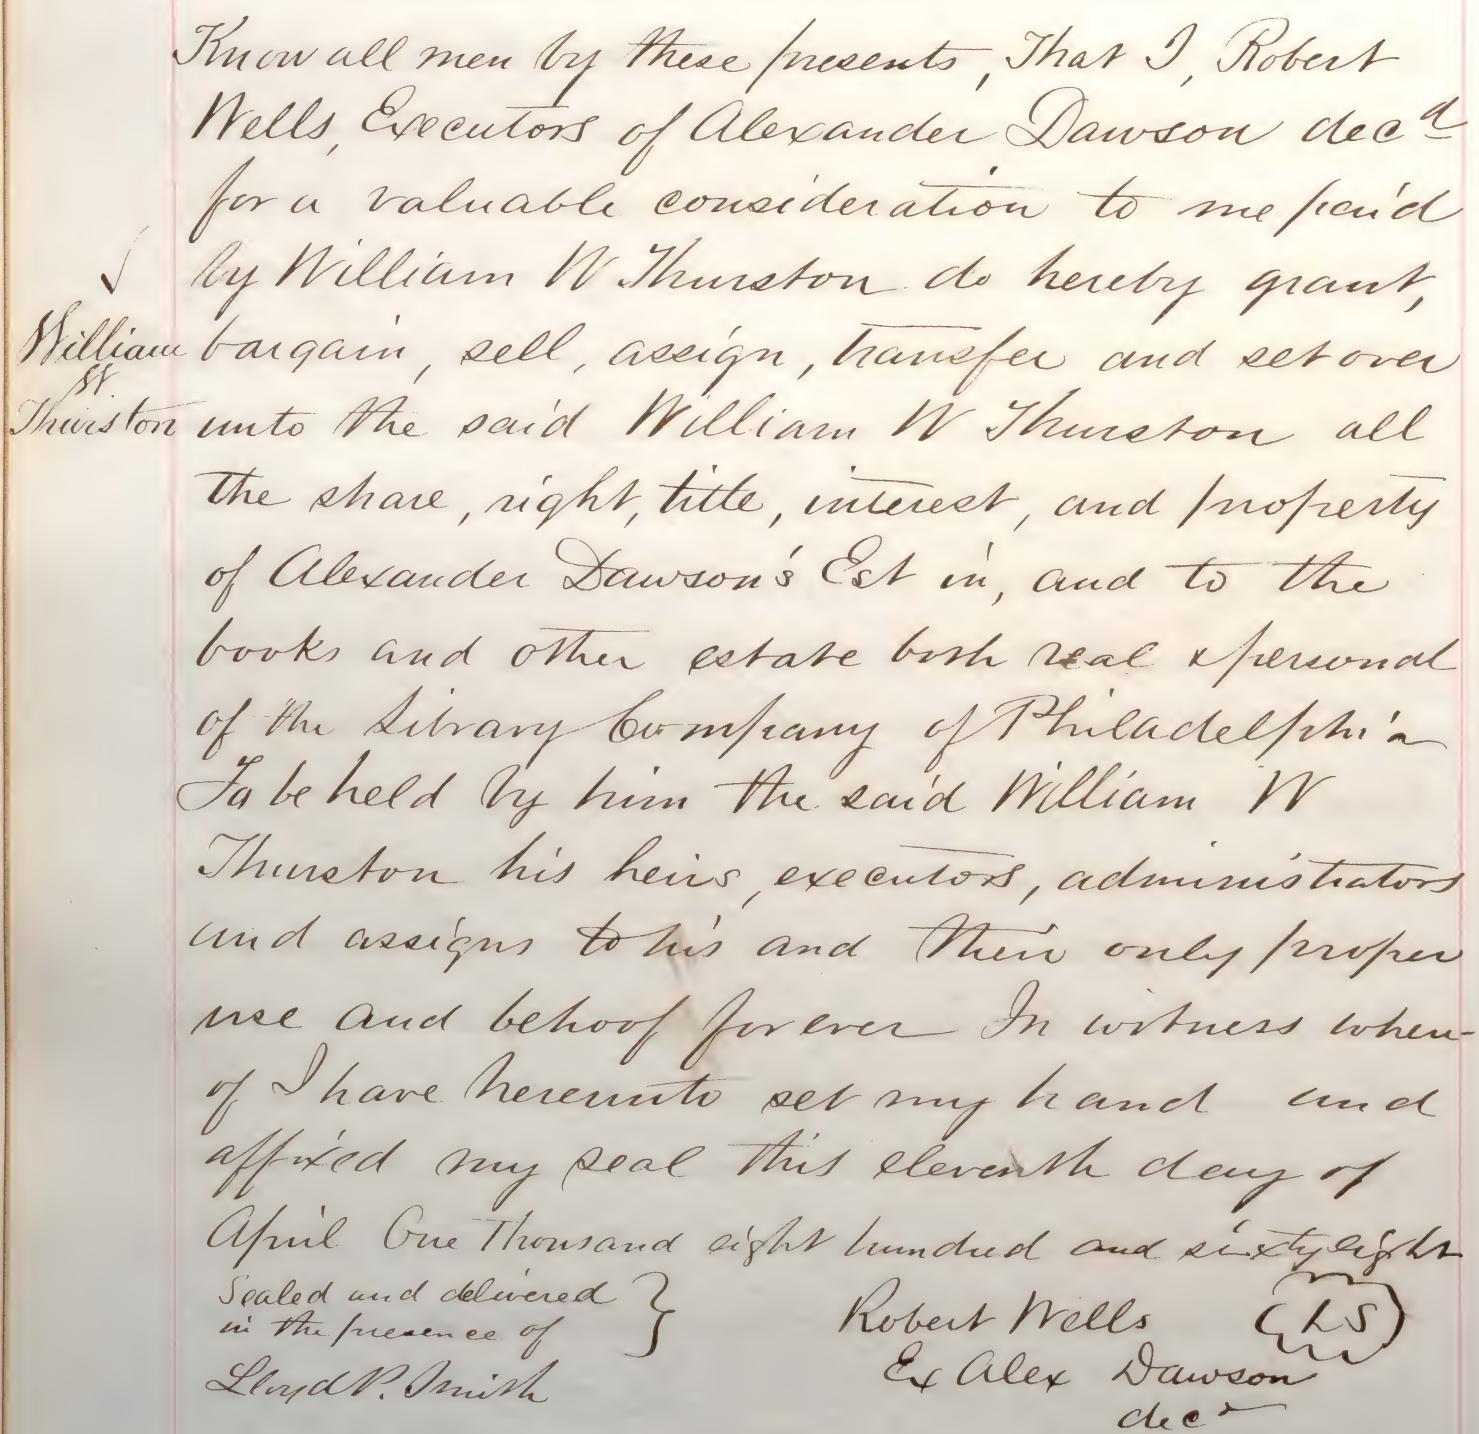 Know all men by these presents, That I, Robert
Wells, Executors of Alexander Dawson decd
for a valuable consideration to me paid
by William W Thurston do hereby grant,
William
W.
Thurston
bargain, sell, assign, transfer and set over
unto the said William W Thurston all
the share, right, title, interest, and property
of Alexander Dawson's Est in, and to the
books and other estate both real & personal
of the Library Company of Philadelphia
To be held by him the said William W
Thurston his heirs, executors, administrators
and assigns to his and their only proper
use and behoof forever In witness where-
of I have hereunto set my hand and
affixed my seal this eleventh day of
April One Thousand eight hundred and sixty eight
Sealed and delivered
in the presence of
Lloyd P. Smith
Robert Wells (LS)
Ex Alex Dawson
decd